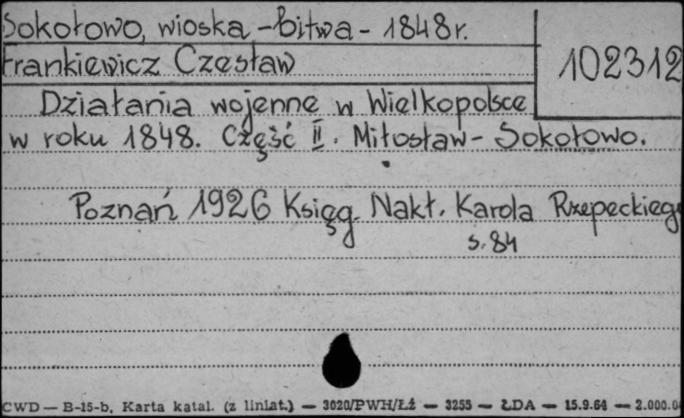 Sokołowo, wioska - bitwa - 1848 r.
Frankiewicz Czesław
102312
Działania wojenne w Wielkopolsce
w roku 1848. Część II. Miłosław - Sokołowo.
Poznań 1926 Księg. Nakł. Karola Rzepeckieg
s. 84
CWD — B-15-b, Karta katal. (z liniat.) — 3020/PWH/Łż — 3255 — ŁDA — 15.9.64 — 2.000.0